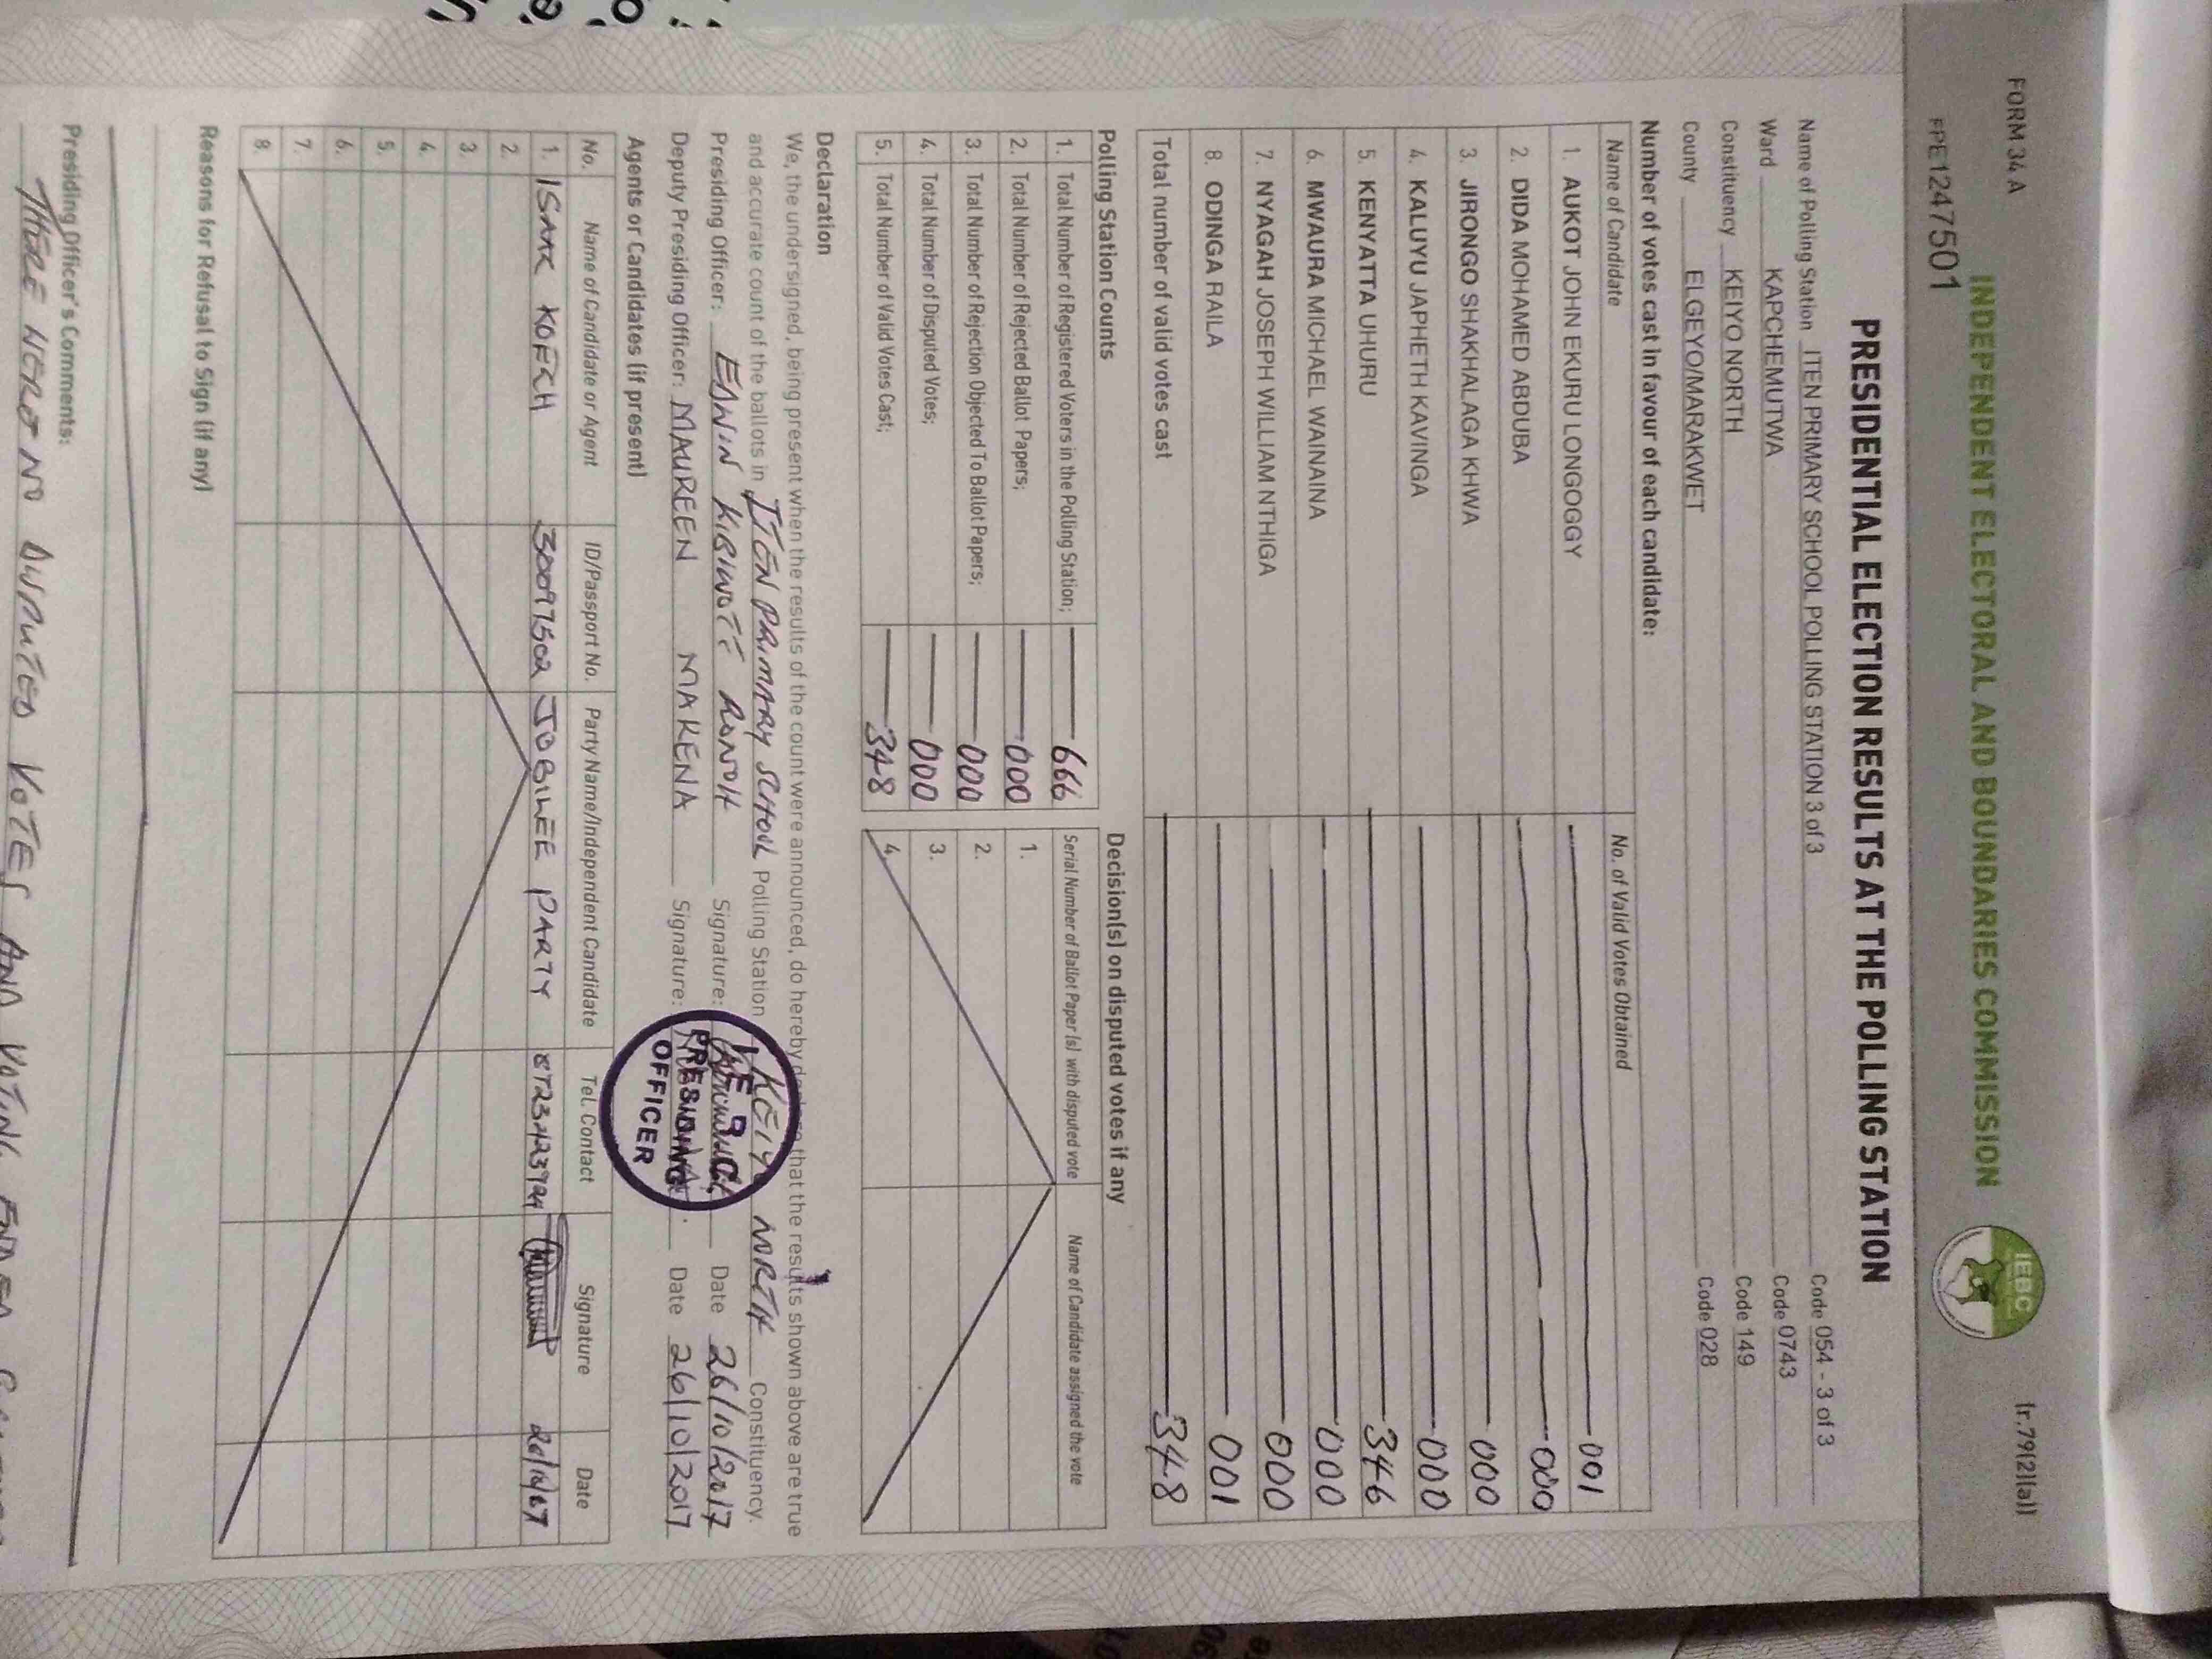 FORM 34 A
(r.79(2)(a))
INDEPENDENT ELECTORAL AND BOUNDARIES COMMISSION
IEBC
PRE1247501
PRESIDENTIAL ELECTION RESULTS AT THE POLLING STATION
Name of Polling Station ITEN PRIMARY SCHOOL POLLING STATION 3 of 3 Code 054 - 3 of 3
Ward KAPCHEMUTWA Code 0743
Constituency KEIYO NORTH Code 149
County ELGEYO/MARAKWET Code 028
Number of votes cast in favour of each candidate:
Name of Candidate No. of Valid Votes Obtained
1. AUKOT JOHN EKURU LONGOGGY 001
2. DIDA MOHAMED ABDUBA 000
3. JIRONGO SHAKHALAGA KHWA 000
4. KALUYU JAPHETH KAVINGA 000
5. KENYATTA UHURU 346
6. MWAURA MICHAEL WAINAINA 000
7. NYAGAH JOSEPH WILLIAM NTHIGA 000
8. ODINGA RAILA 001
Total number of valid votes cast 348
Polling Station Counts
1. Total Number of Registered Voters in the Polling Station; 666
2. Total Number of Rejected Ballot Papers; 000
3. Total Number of Rejection Objected To Ballot Papers; 000
4. Total Number of Disputed Votes; 000
5. Total Number of Valid Votes Cast; 348
Decision(s) on disputed votes if any
Serial Number of Ballot Paper (s) with disputed vote Name of Candidate assigned the vote
1.
2.
3.
4.
Declaration
We, the undersigned, being present when the results of the count were announced, do hereby declare that the results shown above are true
and accurate count of the ballots in ITEN PRIMARY SCHOOL Polling Station KEIYO NORTH Constituency.
Presiding Officer: EDWIN KIBIWOTT RONOH Signature: Date 26/10/2017
Deputy Presiding Officer: MAUREEN MAKENA Signature: Date 26/10/2017
IEBC
PRESIDING
OFFICER
Agents or Candidates (if present)
No. Name of Candidate or Agent ID/Passport No. Party Name/Independent Candidate Tel. Contact Signature Date
1. ISAAC KOECH 30097502 JUBILEE PARTY
2.
3.
4.
5.
6.
7.
8.
Reasons for Refusal to Sign (if any)
Presiding Officer's Comments:
THERE WERE NO DISPUTED VOTES AND VOTING ENDED